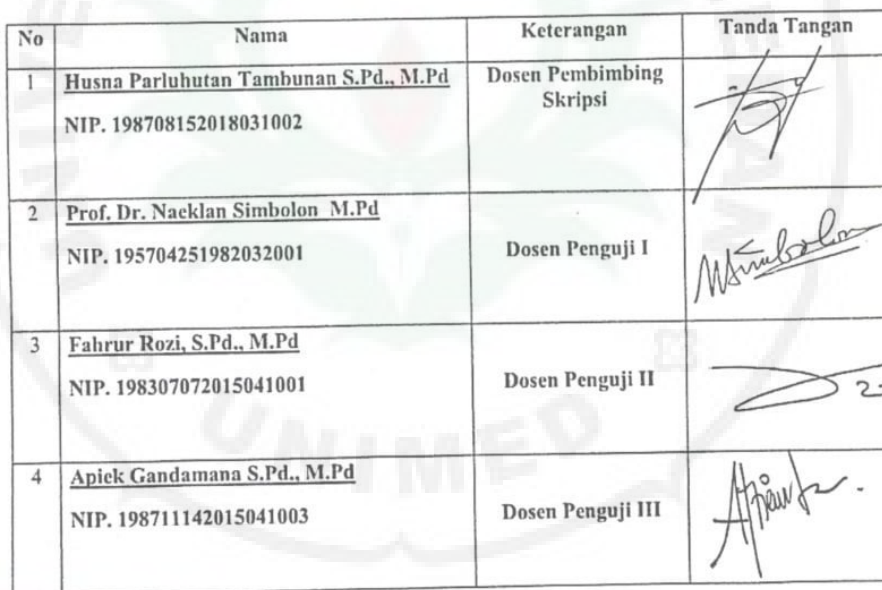 No Nama Keterangan Tanda Tangan
1 Husna Parluhutan Tambunan S.Pd., M.Pd Dosen Pembimbing
Skripsi
NIP. 198708152018031002
2 Prof. Dr. Naeklan Simbolon M.Pd
NIP. 195704251982032001 Dosen Penguji I
3 Fahrur Rozi, S.Pd., M.Pd
NIP. 198307072015041001 Dosen Penguji II
4 Apiek Gandamana S.Pd., M.Pd
NIP. 198711142015041003 Dosen Penguji III
UNIMED